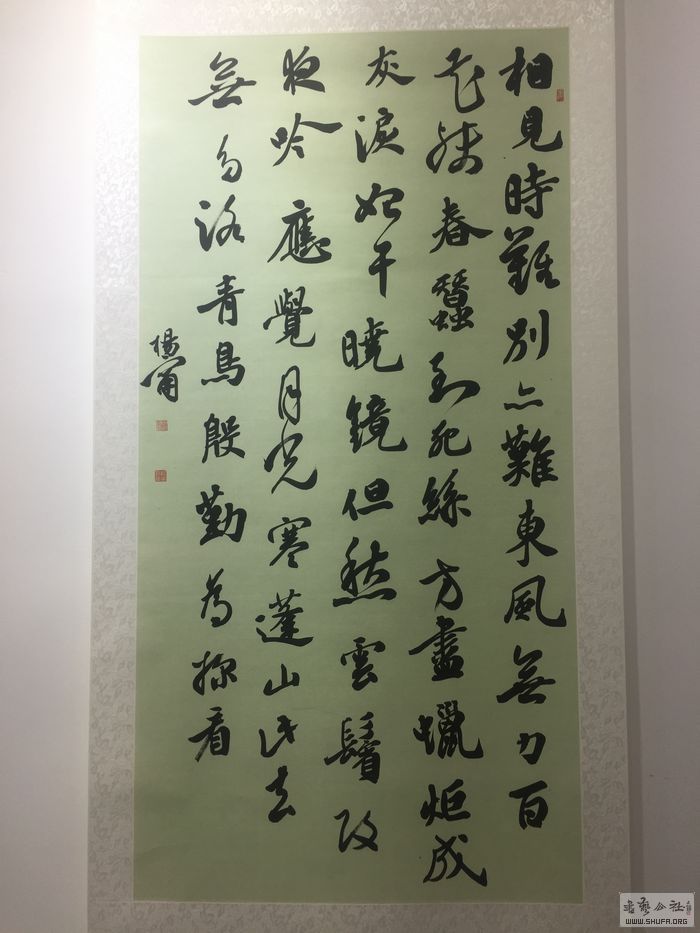 相見時難別亦難東風無力百
花殘春蠶到死絲方盡蠟炬成
灰淚始干曉鏡但愁雲鬢改
夜吟應覺月光寒蓬山此去
無多路青鳥殷勤為探看
楊
書藝公社
WWW.SHUFA.ORG